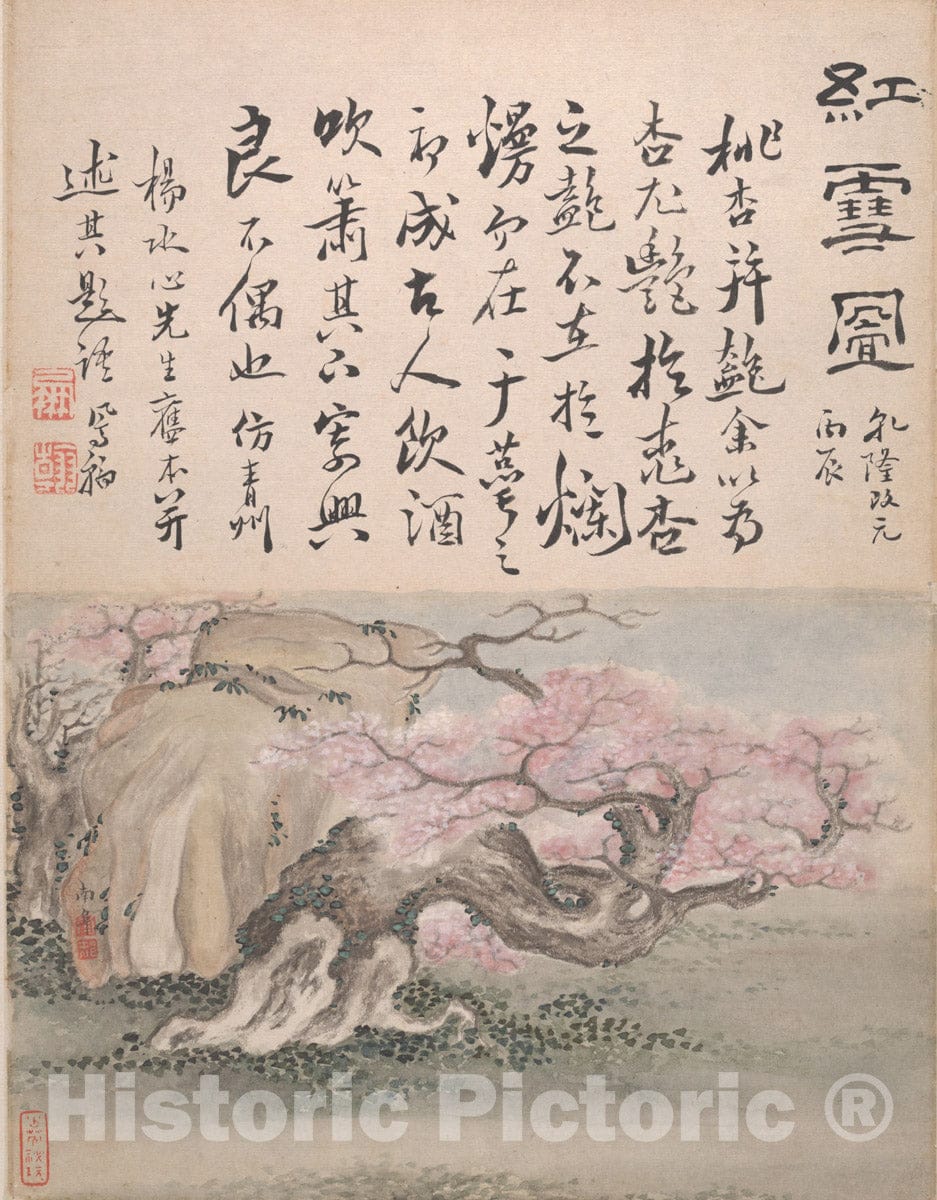 紅雪圖
乾隆改元
丙辰
桃杏并艷余以為
杏尤艷於桃杏
之艷不在於爛
熳而在于蓓蕾之
初成古人飲酒
吹簫其下寄興
良不偶也仿青州
楊水心先生舊本并
述其題語 鳳翰
南阜
Historic Pictoric ®